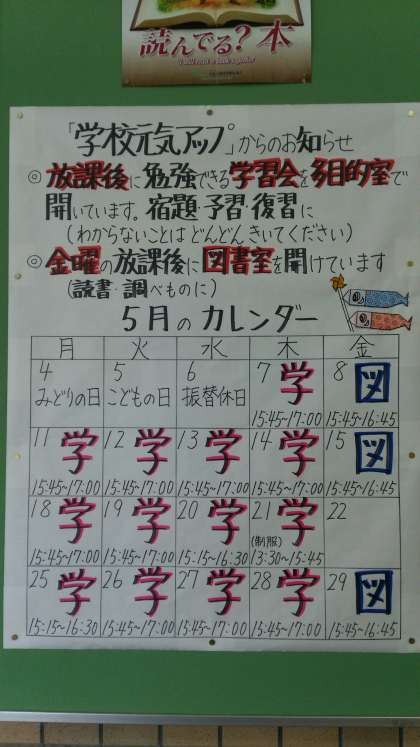 読んでる?本
「学校元気アップ」からのお知らせ
◎放課後に勉強できる学習会を多目的室で
開いています。宿題・予習・復習に
(わからないことは どんどん きいてください)
◎金曜の放課後に図書室を開けています
(読書・調べものに)
5月のカレンダー
月 火 水 木 金
4 5 6 7 学 8 図
みどりの日 こどもの日 振替休日 15:45~17:00 15:45~16:45
11 学 12 学 13 学 14 学 15 図
15:45~17:00 15:45~17:00 15:45~17:00 15:45~17:00 15:45~16:45
18 学 19 学 20 学 21 学 22
(制服)
15:45~17:00 15:45~17:00 15:15~16:30 13:30~15:45
25 学 26 学 27 学 28 学 29 図
15:15~16:30 15:45~17:00 15:45~17:00 15:45~17:00 15:45~16:45